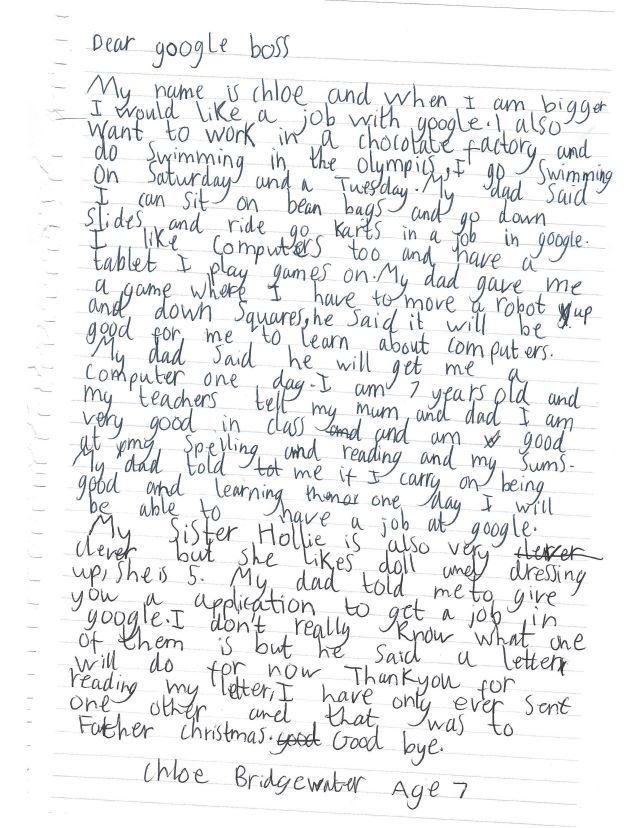 Dear google boss
My name is Chloe and when I am bigger
I would like a job with google. I also
want to work in a chocolate factory and
do swimming in the olympics, I go swimming
on Saturday and a Tuesday. My dad said
I can sit on bean bags and go down
slides and ride go karts in a job in google.
I like computers too and have a
tablet I play games on. My dad gave me
a game where I have to move a robot up
and down squares, he said it will be
good for me to learn about computers.
My dad said he will get me a
computer one day. I am 7 years old and
my teachers tell my mum and dad I am
very good in class and and am good
at my spelling and reading and my sums.
My dad told tot me if I carry on being
good and learning one day I will
be able to have a job at google.
My sister Hollie is also very clever
clever but she likes doll and dressing
up, she is 5. My dad told me to give
you a application to get a job in
google. I don't really know what one
of them is but he said a letter
will do for now Thankyou for
reading my letter, I have only ever sent
one other and that was to
Father christmas. good Good bye.
Chloe Bridgewater Age 7